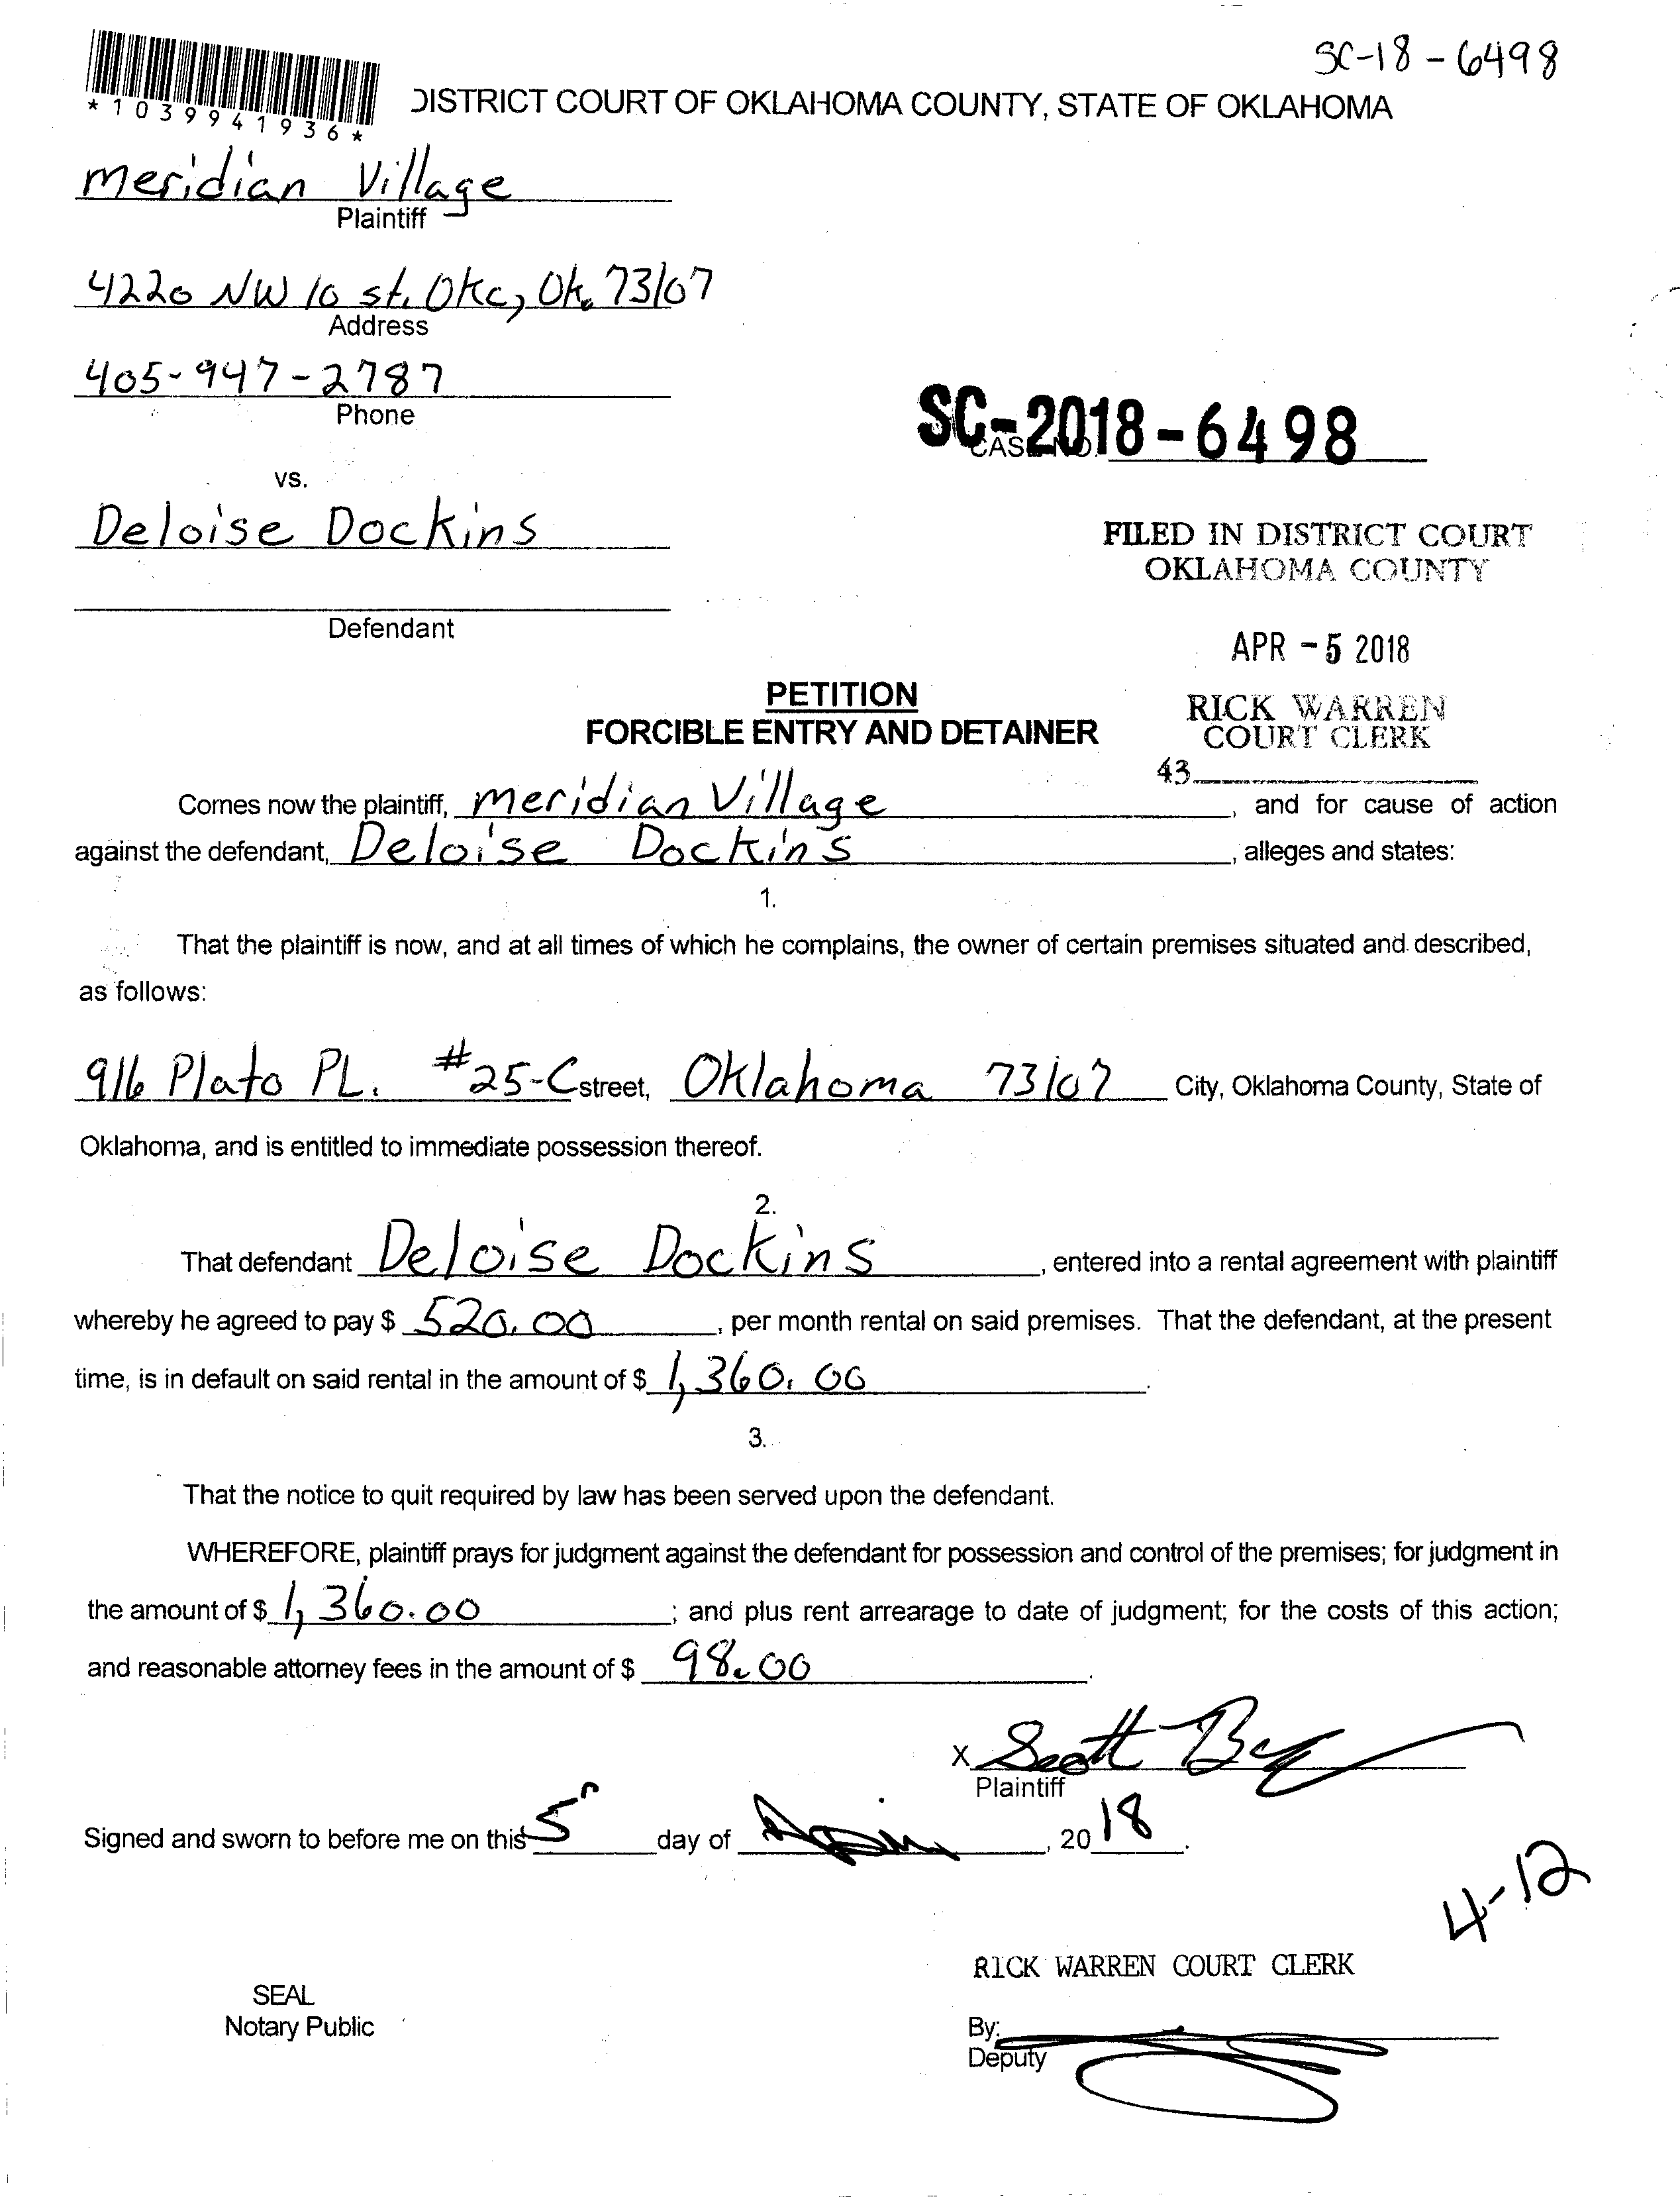 SC-18-6498
*1039941936*
DISTRICT COURT OF OKLAHOMA COUNTY, STATE OF OKLAHOMA
Meridian Village
Plaintiff
4220 NW 10 st. Okc, Ok. 73107
Address
405-947-2787
Phone
SC-2018-6498
CASE NO.
vs.
Deloise Dockins
Defendant
FILED IN DISTRICT COURT
OKLAHOMA COUNTY
APR -5 2018
RICK WARREN
COURT CLERK
43
PETITION
FORCIBLE ENTRY AND DETAINER
Comes now the plaintiff, Meridian Village, and for cause of action
against the defendant, Deloise Dockins, alleges and states:
1.
That the plaintiff is now, and at all times of which he complains, the owner of certain premises situated and described,
as follows:
916 Plato PL. #25-C street, Oklahoma 73107 City, Oklahoma County, State of
Oklahoma, and is entitled to immediate possession thereof.
2.
That defendant Deloise Dockins, entered into a rental agreement with plaintiff
whereby he agreed to pay $ 520.00, per month rental on said premises. That the defendant, at the present
time, is in default on said rental in the amount of $ 1,360.00.
3.
That the notice to quit required by law has been served upon the defendant.
WHEREFORE, plaintiff prays for judgment against the defendant for possession and control of the premises; for judgment in
the amount of $ 1,360.00; and plus rent arrearage to date of judgment; for the costs of this action;
and reasonable attorney fees in the amount of $ 98.00.
X Scott
Plaintiff
Signed and sworn to before me on this 5 day of , 2018.
4-12
RICK WARREN COURT CLERK
SEAL
Notary Public
By:
Deputy